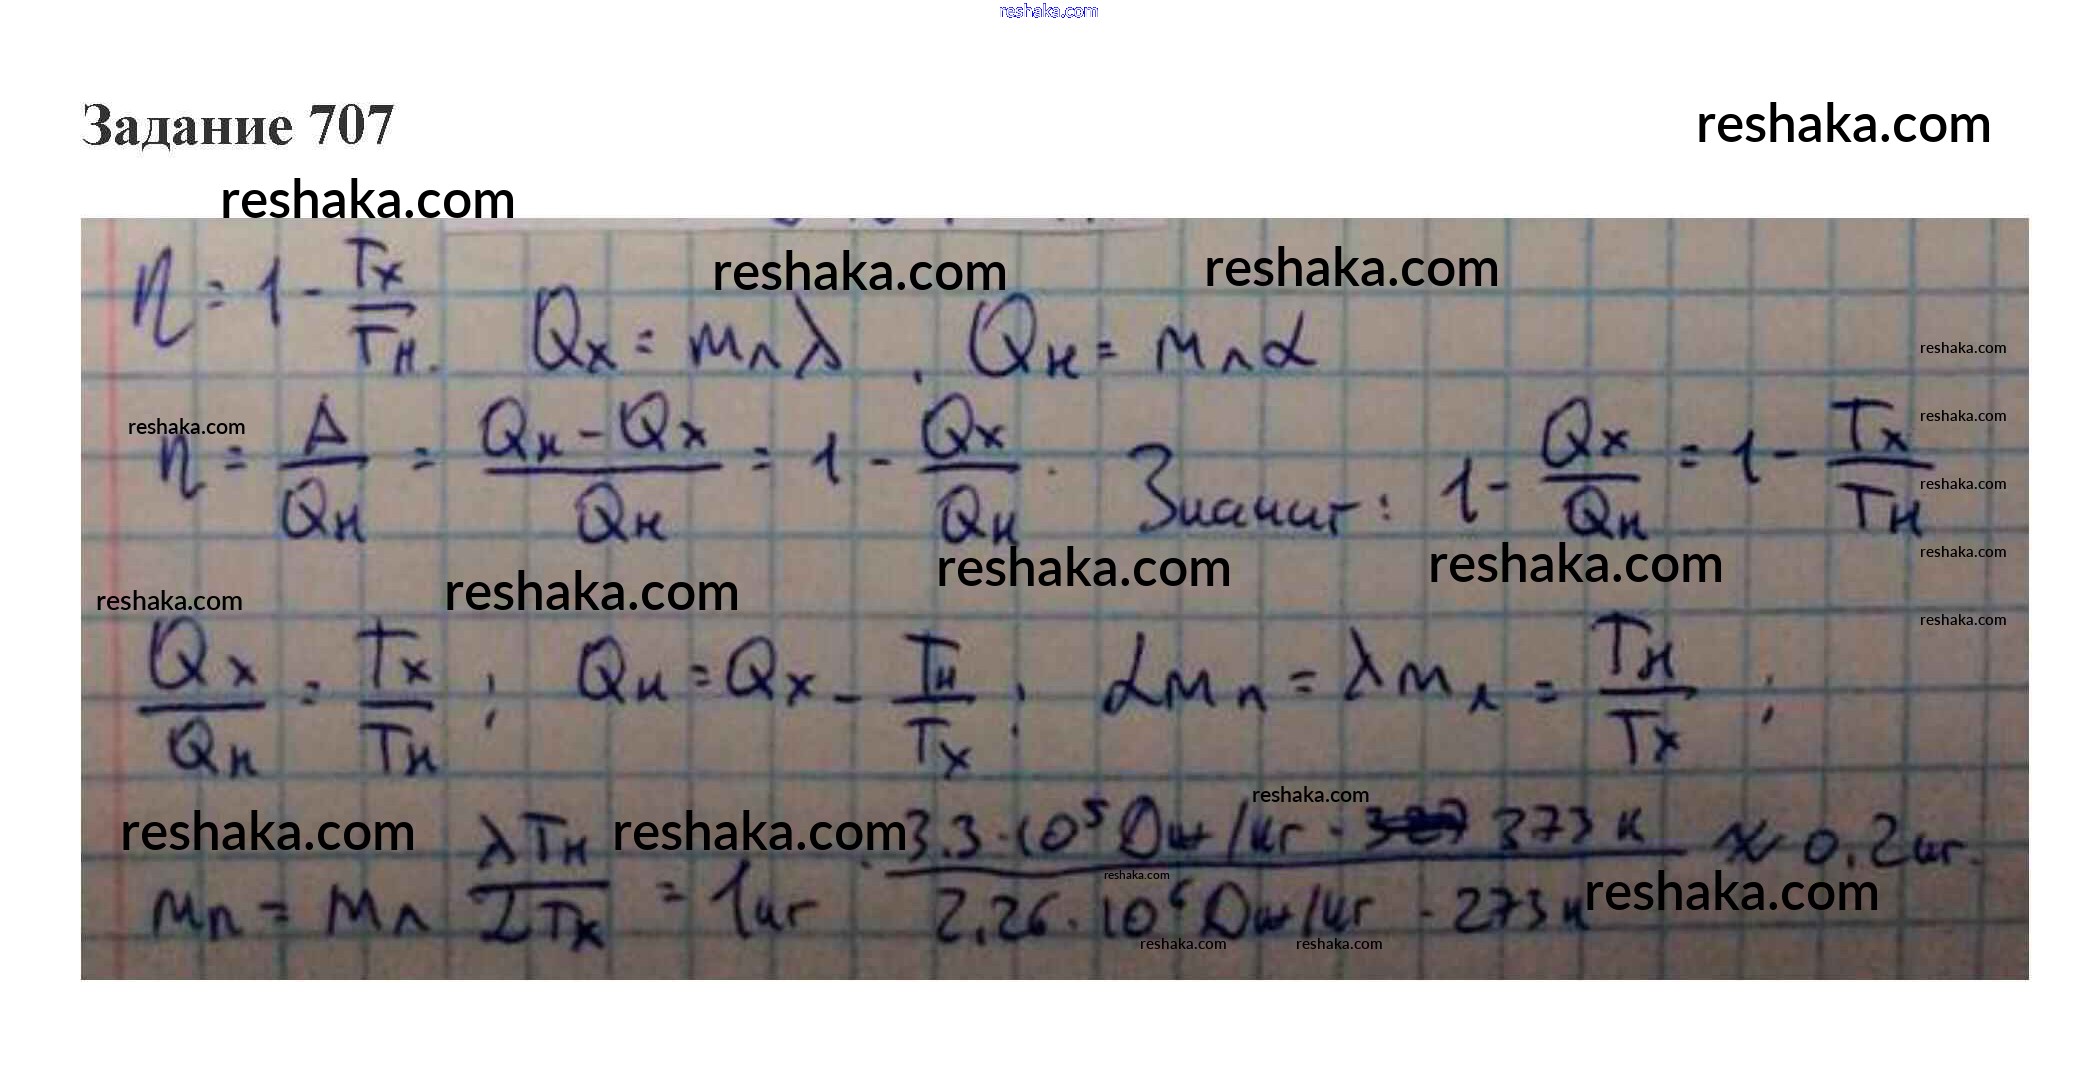 reshaka.com
Задание 707
reshaka.com
reshaka.com
reshaka.com
reshaka.com
η = 1 - Tх/Tн. Qх = mл λ, Qн = mп L
reshaka.com
reshaka.com
reshaka.com
η = A/Qн = (Qн - Qх)/Qн = 1 - Qх/Qн. Значит: 1 - Qх/Qн = 1 - Tх/Tн
reshaka.com
reshaka.com
reshaka.com
reshaka.com
reshaka.com
reshaka.com
reshaka.com
Qх/Qн = Tх/Tн; Qн = Qх - Tн/Tх; L mп = λ mл = Tн/Tх;
reshaka.com
reshaka.com
reshaka.com
mп = mл λTн/LTх = 1 кг · 3.3·10⁵ Дж/кг · 373 К / 2.26·10⁶ Дж/кг · 273 К ≈ 0.2 кг.
reshaka.com
reshaka.com
reshaka.com
reshaka.com